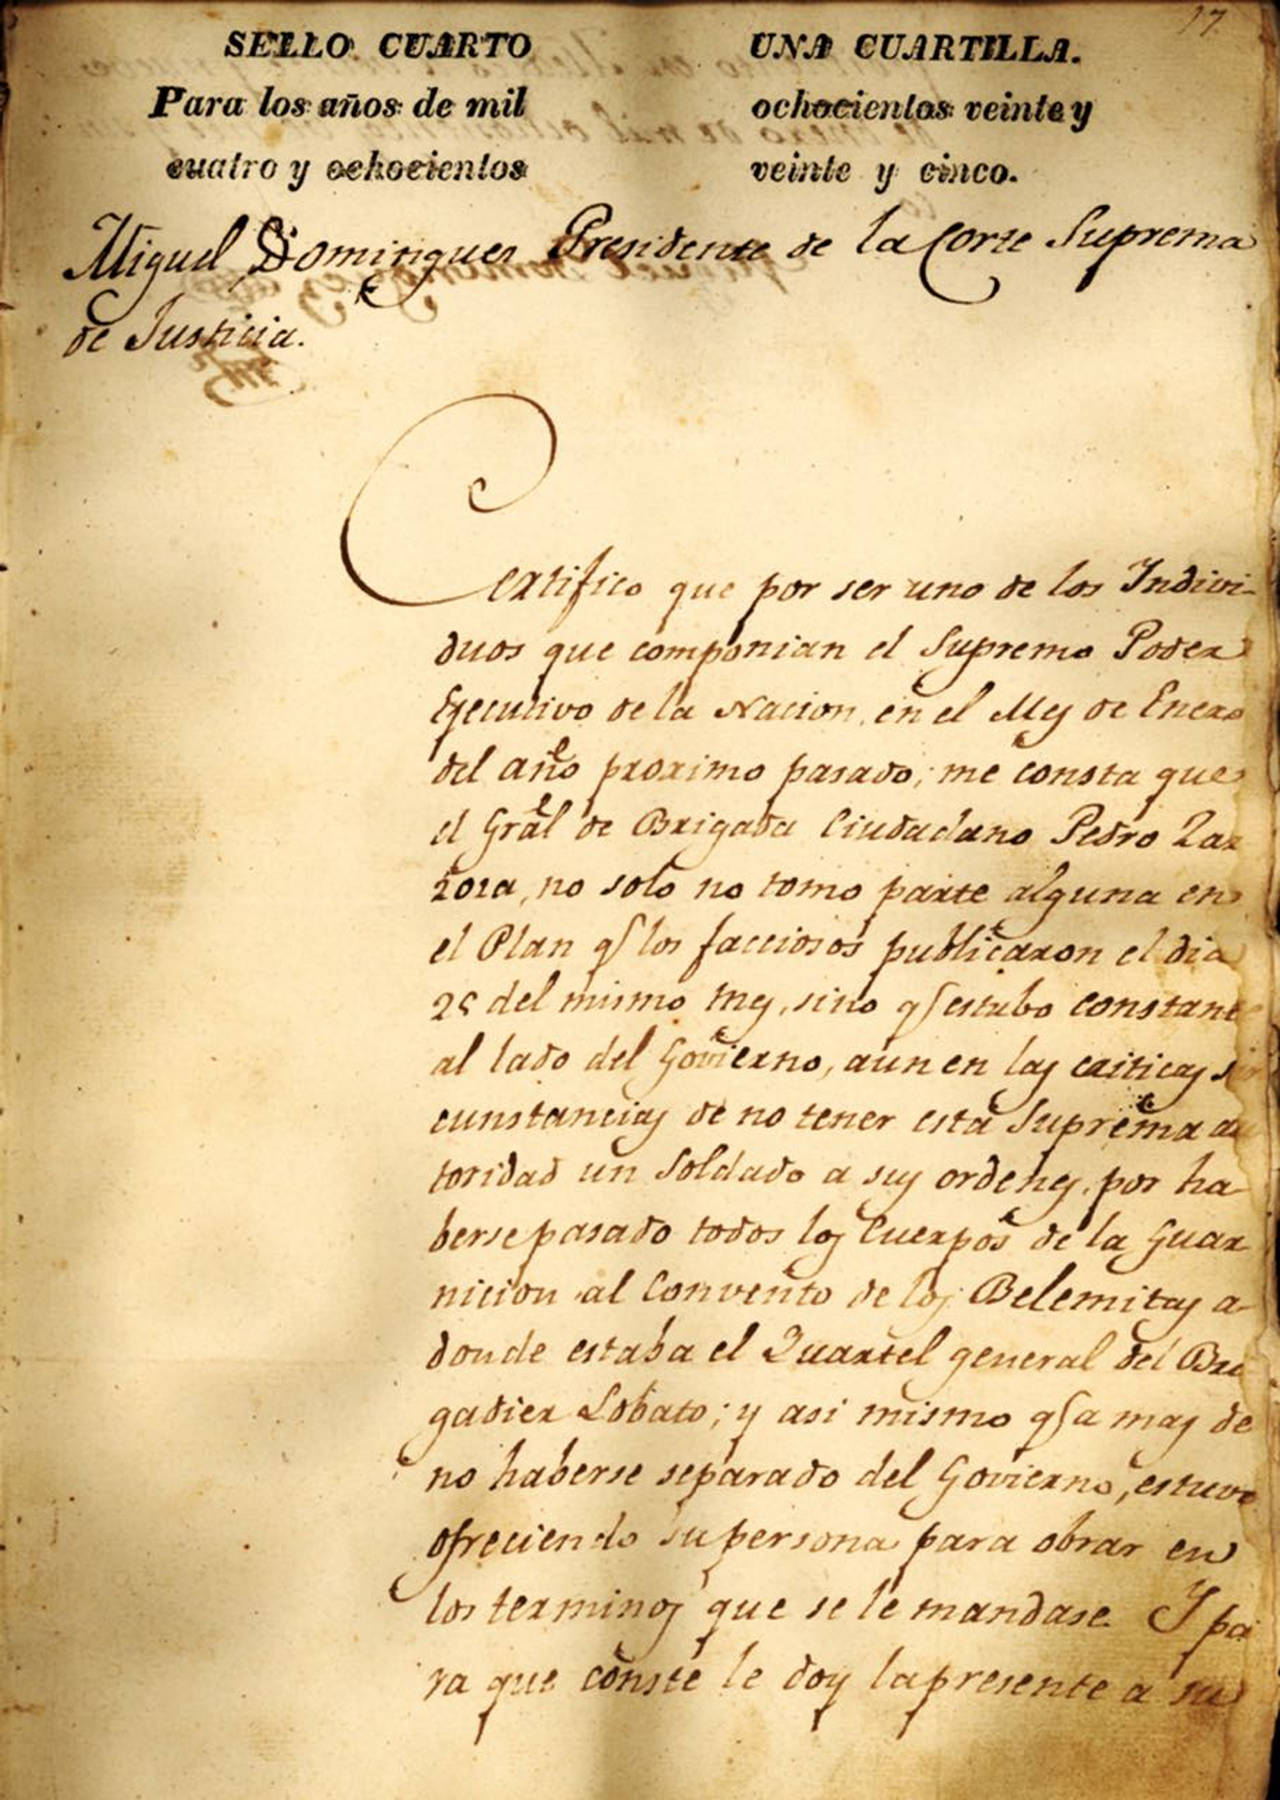 17
SELLO CUARTO UNA CUARTILLA.
Para los años de mil ochocientos veinte y
cuatro y ochocientos veinte y cinco.
Miguel Dominguez Presidente de la Corte Suprema
de Justicia.
Certifico que por ser uno de los Indivi-
duos que componian el Supremo Poder
Ejecutivo de la Nacion, en el Mes de Enero
del año proximo pasado; me consta que
el Gral de Brigada Ciudadano Pedro Zar
zoza, no solo no tomo parte alguna en
el Plan q los facciosos publicaron el dia
25 del mismo mes, sino q estubo constante
al lado del Govierno, aun en las criticas sir
cunstancias de no tener esta Suprema au
toridad un Soldado a sus ordenes, por ha-
berse pasado todos los Cuerpos de la Guar
nicion al Convento de los Belemitas a-
donde estaba el Quartel general del Bri
gadier Lobato; y asi mismo q a mas de
no haberse separado del Govierno, estuvo
ofreciendo su persona para obrar en
los terminos que se le mandase. Y pa
ra que conste le doy la presente a su